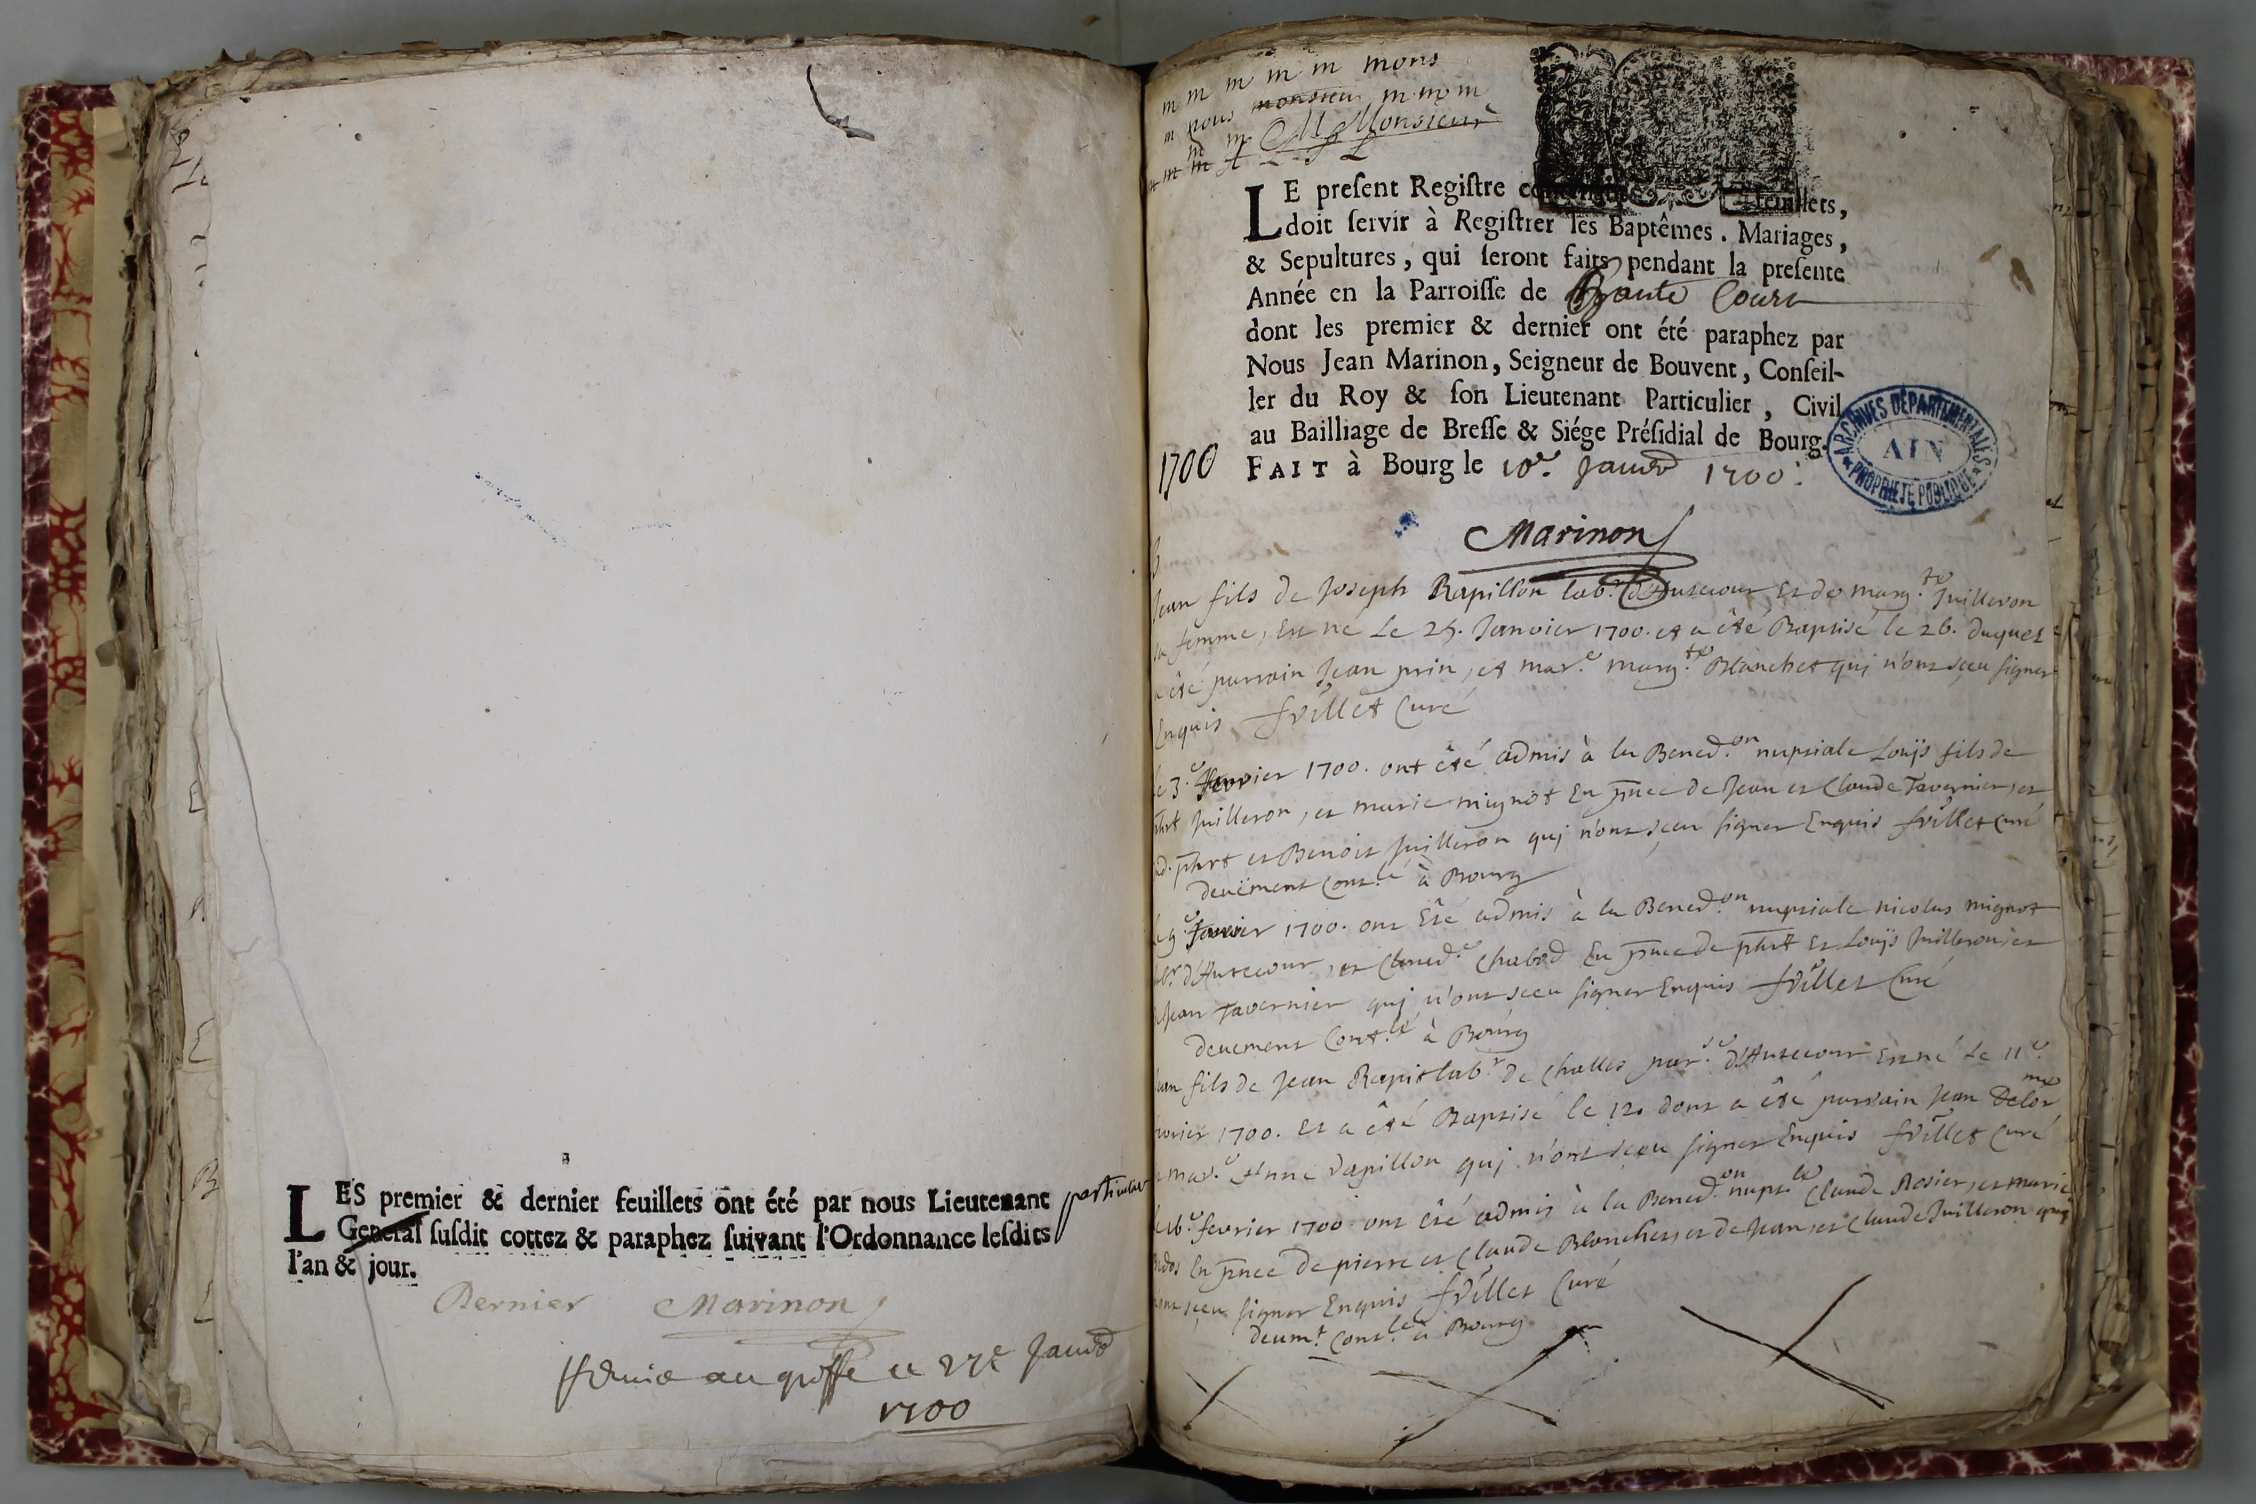 LES premier & dernier feuillets ont été par nous Lieutenant particulier
General susdit cottez & paraphez suivant l'Ordonnance lesdits
l'an & jour.
Dernier Marinon
au greffe ce 27e Janvr
1700
m m m m m mons
m nous monsieur m m m
m m M Monsieur
LE present Registre feuillets,
doit servir à Registrer les Baptêmes. Mariages,
& Sepultures, qui seront faits pendant la presente
Année en la Parroisse de Haute Court
dont les premier & dernier ont été paraphez par
Nous Jean Marinon, Seigneur de Bouvent, Conseil-
ler du Roy & son Lieutenant Particulier, Civil
au Bailliage de Bresse & Siége Présidial de Bourg.
1700 FAIT à Bourg le 10e Janvr 1700.
ARCHIVES DÉPARTEMENTALES
AIN
PROPRIÉTÉ PUBLIQUE
Marinon
Jean fils de Joseph Rapillon lab.r d'Autecour et de marg.te Juilleron
sa femme, est né Le 25. Janvier 1700. et a êté Baptisé le 26. duquel
a êté parrain Jean prin, et mar.e marg.te Blanchet quj n'ont sceu signer
Enquis frillet Curé
le 3.e fevrier 1700. ont êté admis à la Bened.on nuptiale Louÿs fils de
phrt Juilleron, et marie mignot En pnce de Jean et Claude Tavernier, et
ed. phrt et Benoit Juilleron quj n'ont sceu signer Enquis frillet Curé
deuëment Cont.lé à Bourg
Le 9.e fevrier 1700. ont Eté admis à la Bened.on nuptiale nicolas mignot
lab.r d'Autecour, et Claud.e Chabod En pnce de phrt et Louÿs Juilleron, et
Jean Tavernier quj n'ont sceu signer Enquis frillet Curé
deuement Cont.lé à Bourg
Jean fils de Jean Rapit lab.r de Challes par.e d'Autecour Est né Le 11.e
fevrier 1700. Et a êté Baptisé le 12. dont a êté parrain Jean Delorme
mar.e Anne Dapillon quj n'ont sceu signer Enquis frillet Curé
le 16.e fevrier 1700. ont êté admis à la Bened.on nupt.le Claude Rosier, et marie
En pnce de pierre et Claude Blanchet, et de Jean, et Claude Juilleron quj
n'ont sceu signer Enquis frillet Curé
deum.t Cont.lé à Bourg